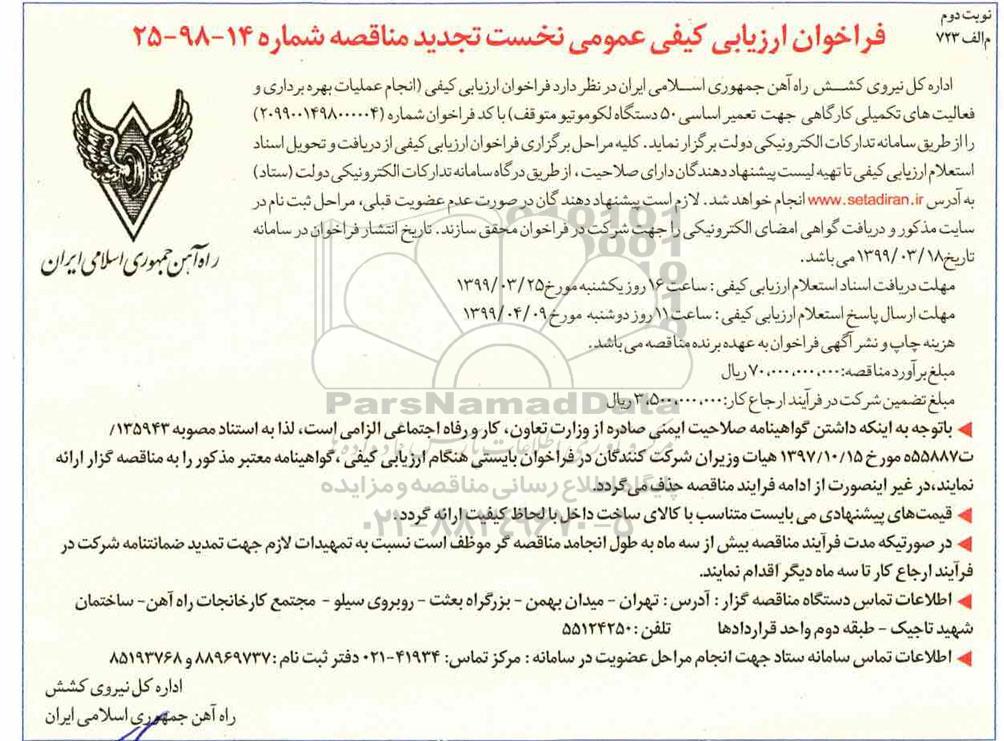 نوبت دوم
م الف ۷۲۳
فراخوان ارزیابی کیفی عمومی نخست تجدید مناقصه شماره ۱۴-۹۸-۲۵
اداره کل نیروی کشش راه آهن جمهوری اسلامی ایران در نظر دارد فراخوان ارزیابی کیفی (انجام عملیات بهره برداری و
فعالیت های تکمیلی کارگاهی جهت تعمیر اساسی ۵۰ دستگاه لکوموتیو متوقف) با کد فراخوان شماره (۲۰۹۹۰۰۱۴۹۸۰۰۰۰۰۴)
را از طریق سامانه تدارکات الکترونیکی دولت برگزار نماید. کلیه مراحل برگزاری فراخوان ارزیابی کیفی از دریافت و تحویل اسناد
استعلام ارزیابی کیفی تا تهیه لیست پیشنهاد دهندگان دارای صلاحیت، از طریق درگاه سامانه تدارکات الکترونیکی دولت (ستاد)
به آدرس www.setadiran.ir انجام خواهد شد. لازم است پیشنهاد دهندگان در صورت عدم عضویت قبلی، مراحل ثبت نام در
سایت مذکور و دریافت گواهی امضای الکترونیکی را جهت شرکت در فراخوان محقق سازند. تاریخ انتشار فراخوان در سامانه
تاریخ ۱۳۹۹/۰۳/۱۸ می باشد.
راه آهن جمهوری اسلامی ایران
مهلت دریافت اسناد استعلام ارزیابی کیفی: ساعت ۱۶ روز یکشنبه مورخ ۱۳۹۹/۰۳/۲۵
مهلت ارسال پاسخ استعلام ارزیابی کیفی: ساعت ۱۱ روز دوشنبه مورخ ۱۳۹۹/۰۴/۰۹
هزینه چاپ و نشر آگهی فراخوان به عهده برنده مناقصه می باشد.
مبلغ برآورد مناقصه: ۷۰،۰۰۰،۰۰۰،۰۰۰ ریال
مبلغ تضمین شرکت در فرآیند ارجاع کار: ۳،۵۰۰،۰۰۰،۰۰۰ ریال
ParsNamadData
◄ با توجه به اینکه داشتن گواهینامه صلاحیت ایمنی صادره از وزارت تعاون، کار و رفاه اجتماعی الزامی است، لذا به استناد مصوبه ۱۳۵۹۴۳/
ت۵۵۸۸۷ه مورخ ۱۳۹۷/۱۰/۱۵ هیات وزیران شرکت کنندگان در فراخوان بایستی هنگام ارزیابی کیفی، گواهینامه معتبر مذکور را به مناقصه گزار ارائه
نمایند، در غیر اینصورت از ادامه فرایند مناقصه حذف می گردد.
پایگاه اطلاع رسانی مناقصه و مزایده
◄ قیمت‌های پیشنهادی می بایست متناسب با کالای ساخت داخل با لحاظ کیفیت ارائه گردد.
۰۲۱-۸۸۳۴۹۶۷۰-۵
◄ در صورتیکه مدت فرآیند مناقصه بیش از سه ماه به طول انجامد مناقصه گر موظف است نسبت به تمهیدات لازم جهت تمدید ضمانتنامه شرکت در
فرآیند ارجاع کار تا سه ماه دیگر اقدام نمایند.
◄ اطلاعات تماس دستگاه مناقصه گزار: آدرس: تهران - میدان بهمن - بزرگراه بعثت - روبروی سیلو - مجتمع کارخانجات راه آهن- ساختمان
شهید تاجیک - طبقه دوم واحد قراردادها تلفن: ۵۵۱۲۴۲۵۰
◄ اطلاعات تماس سامانه ستاد جهت انجام مراحل عضویت در سامانه: مرکز تماس: ۴۱۹۳۴-۰۲۱ دفتر ثبت نام: ۸۸۹۶۹۷۳۷ و ۸۵۱۹۳۷۶۸
اداره کل نیروی کشش
راه آهن جمهوری اسلامی ایران